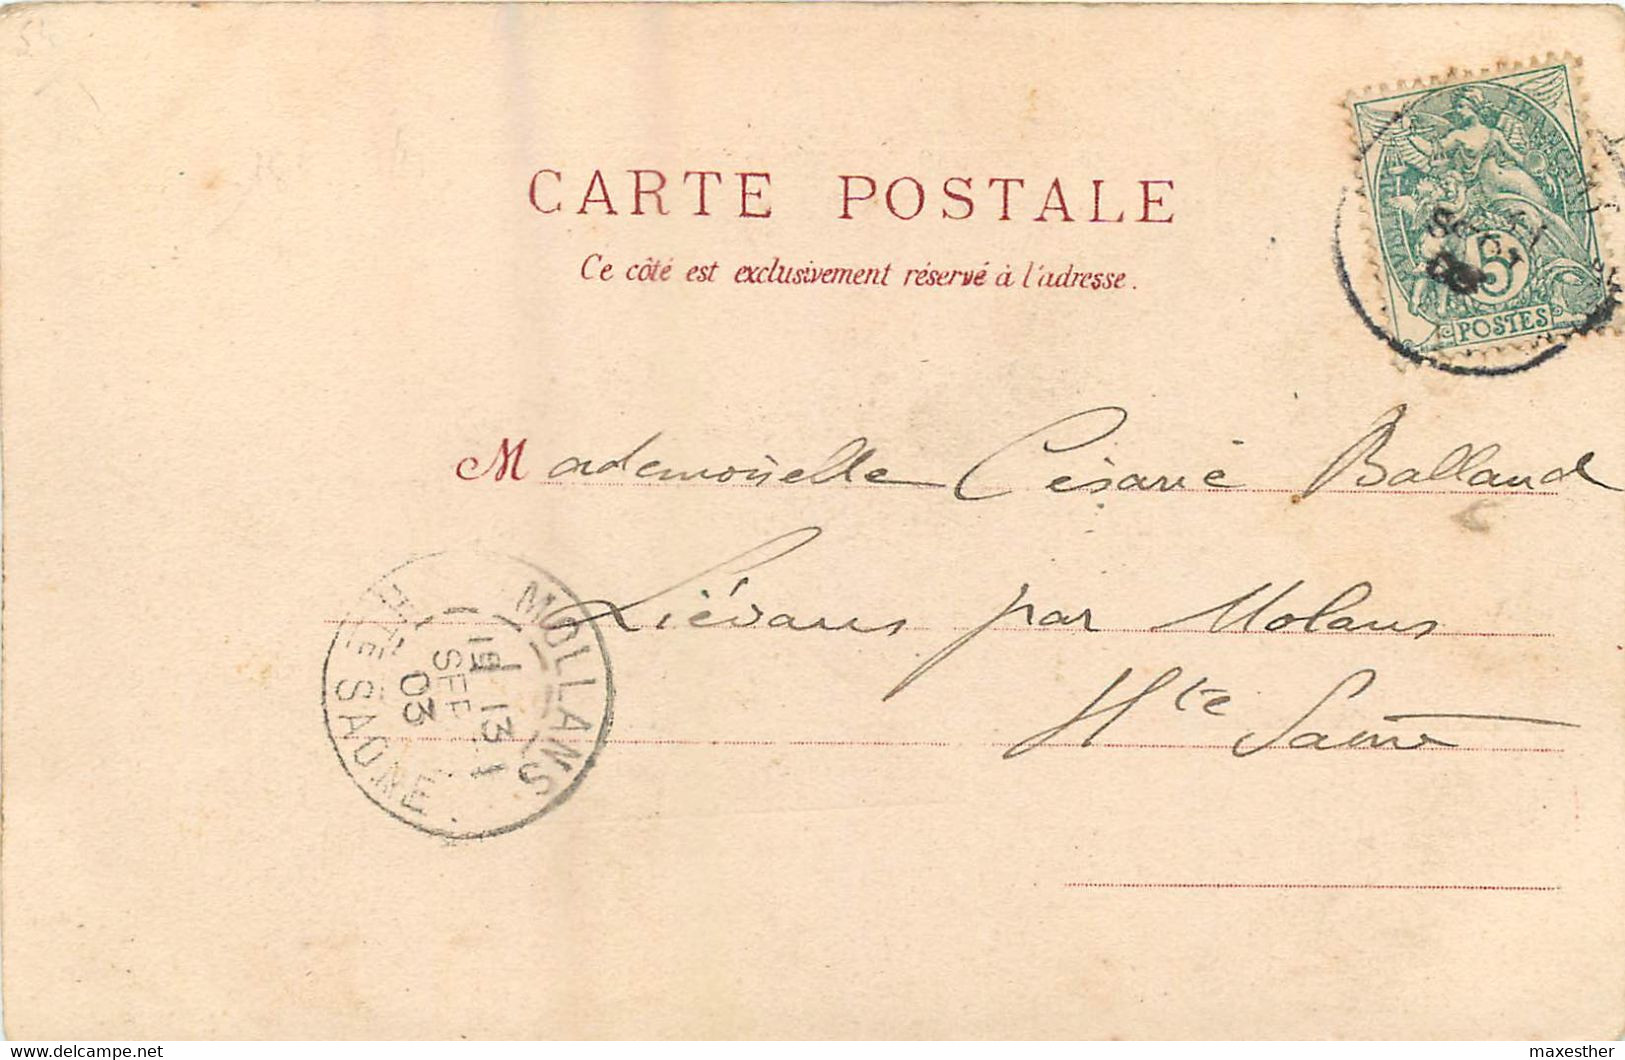 CARTE POSTALE
Ce côté est exclusivement réservé à l'adresse.
POSTES
5
Mademoiselle Césarie Balland
Liévans par Molans
Hte Saône
MOLLANS
13
SEP
03
HTE SAONE
www.delcampe.net
maxesther